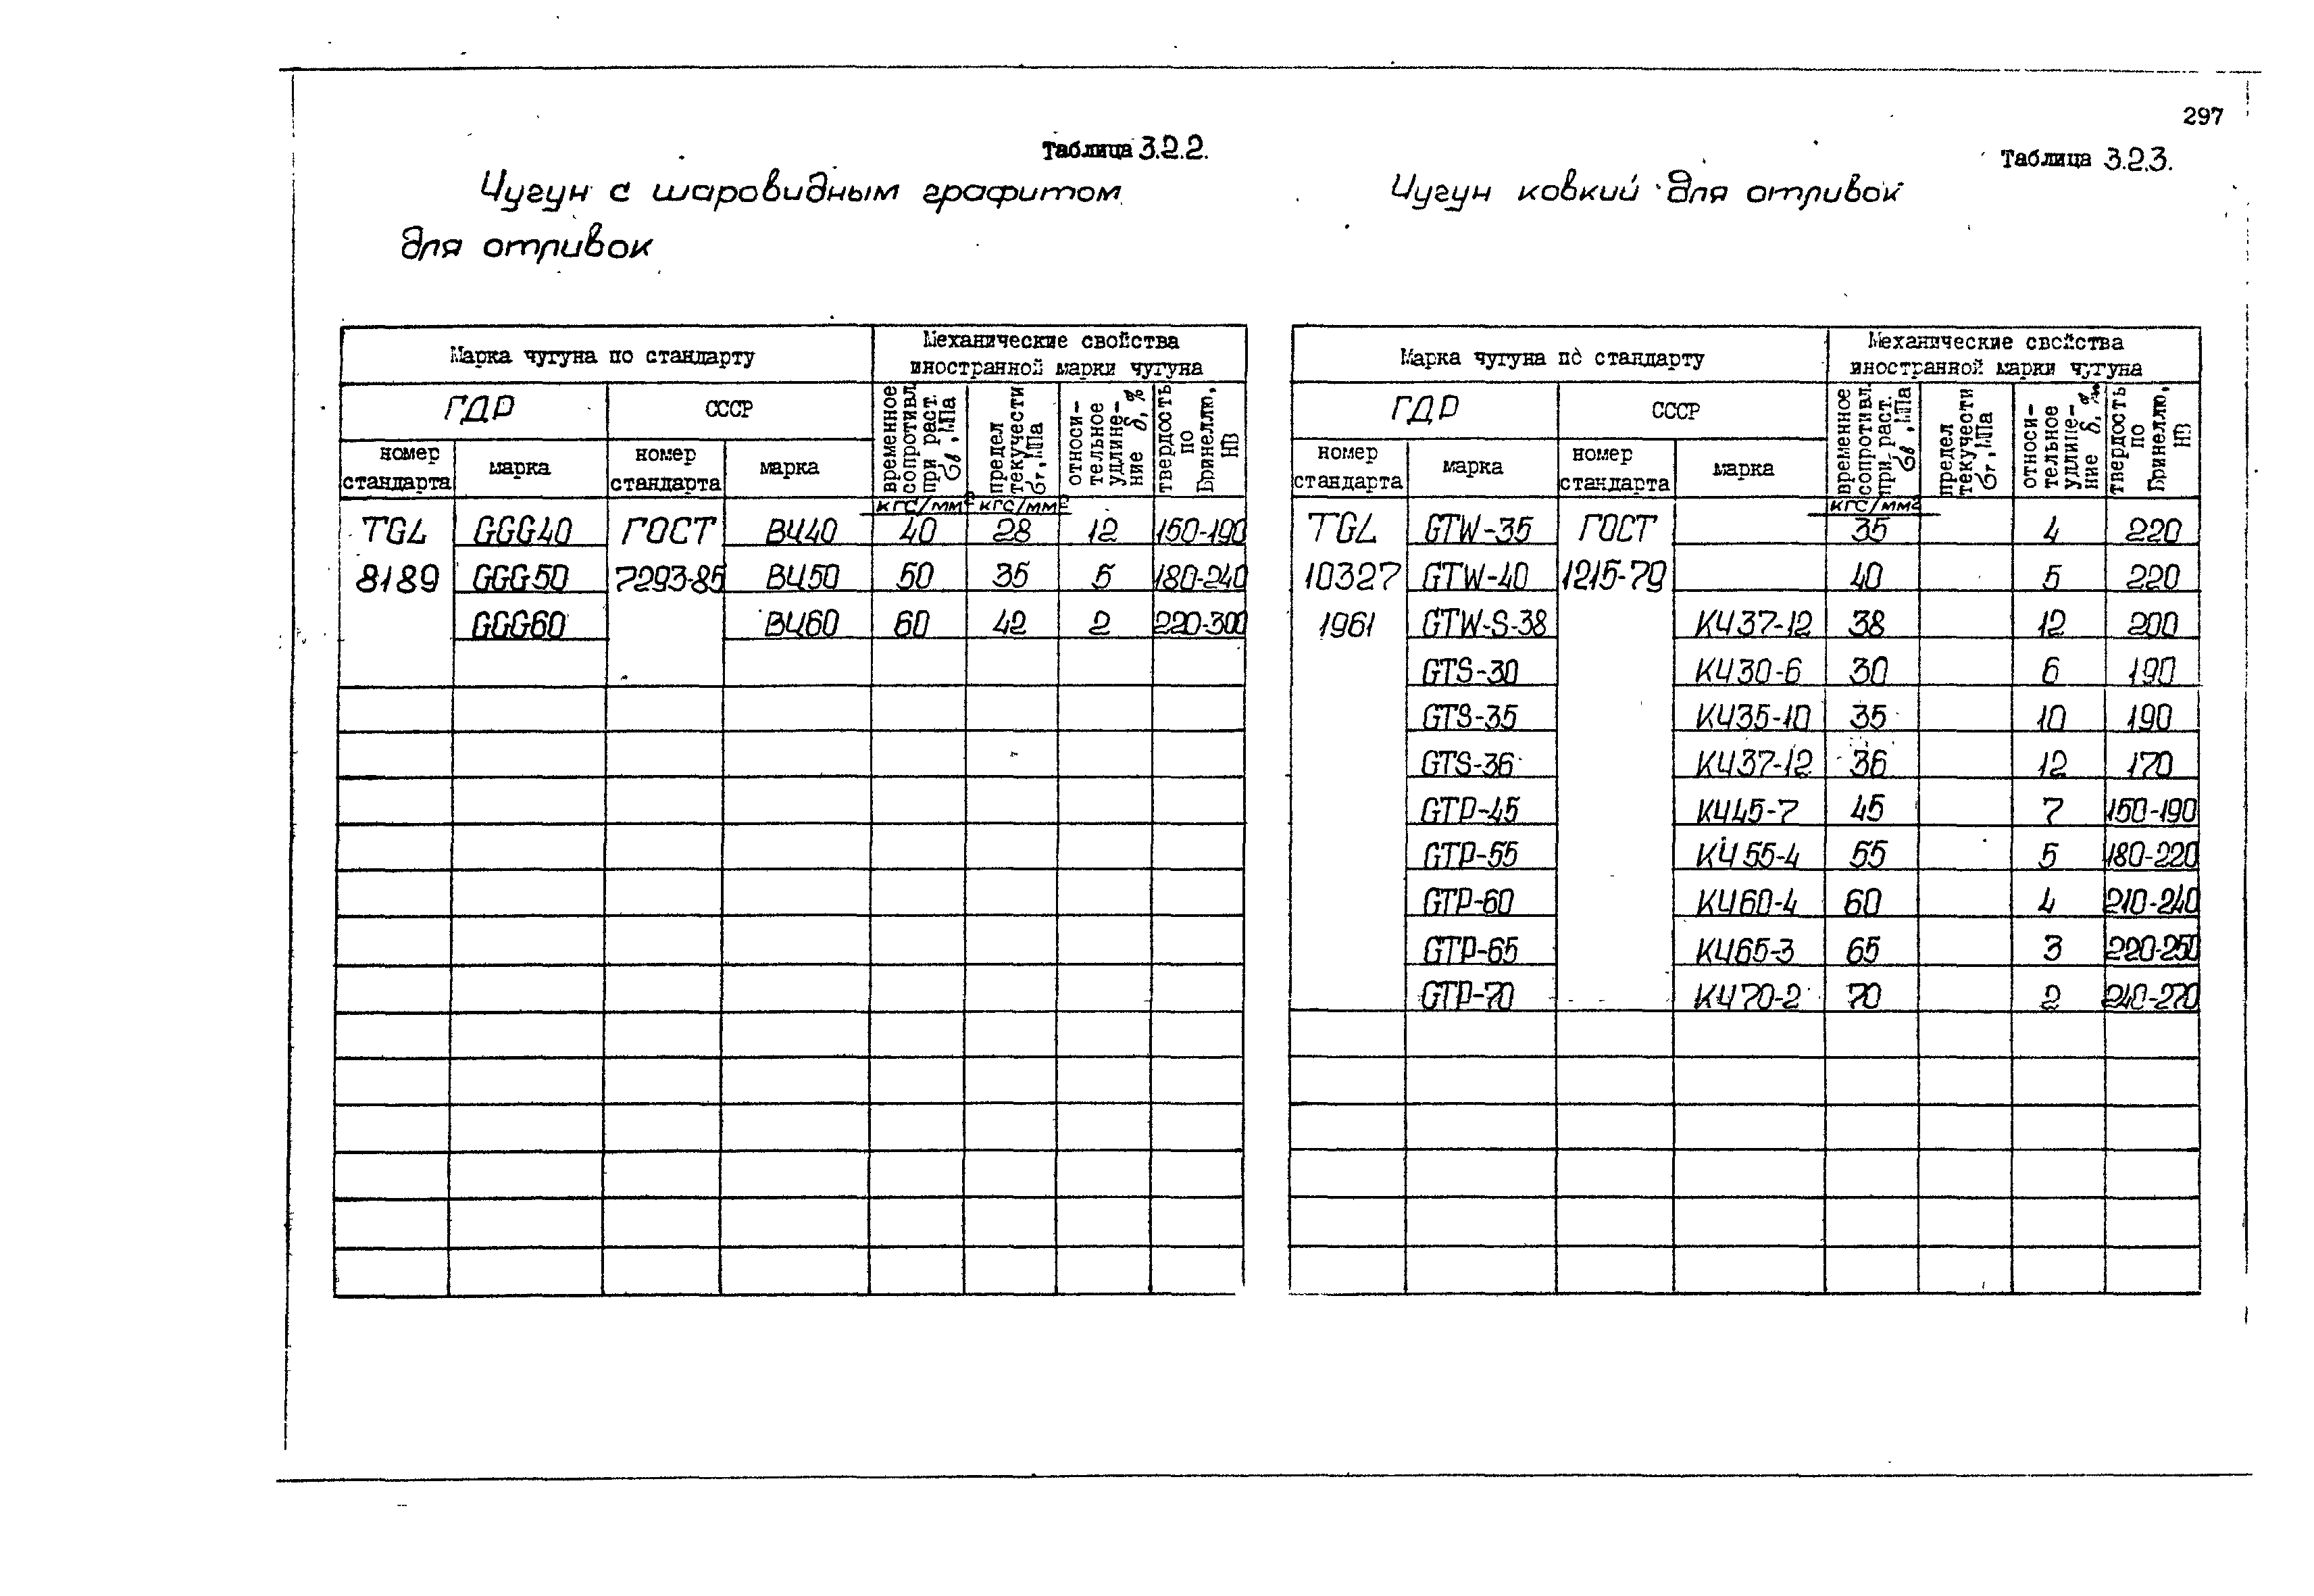 297
Таблица 3.2.2.
Чугун с шаровидным графитом
для отливок
Марка чугуна по стандарту
Механические свойства
иностранной марки чугуна
ГДР
СССР
номер
стандарта
марка
номер
стандарта
марка
временное
сопротивл.
при раст.
σв, МПа
предел
текучести
σт, МПа
относи-
тельное
удлине-
ние δ, %
твердость
по
Бринеллю,
НВ
кгс/мм² кгс/мм²
TGL GGG40 ГОСТ ВЧ40 40 28 12 150-190
8189 GGG50 7293-85 ВЧ50 50 35 5 180-240
GGG60 ВЧ60 60 42 2 220-300
Таблица 3.2.3.
Чугун ковкий для отливок
Марка чугуна по стандарту
Механические свойства
иностранной марки чугуна
ГДР
СССР
номер
стандарта
марка
номер
стандарта
марка
временное
сопротивл.
при раст.
σв, МПа
предел
текучести
σт, МПа
относи-
тельное
удлине-
ние δ, %
твердость
по
Бринеллю,
НВ
кгс/мм²
TGL GTW-35 ГОСТ 35 4 220
10327 GTW-40 1215-79 40 5 220
1961 GTW-S-38 КЧ37-12 38 12 200
GTS-30 КЧ30-6 30 6 190
GTS-35 КЧ35-10 35 10 190
GTS-36 КЧ37-12 36 12 170
GTP-45 КЧ45-7 45 7 150-190
GTP-55 КЧ55-4 55 5 180-220
GTP-60 КЧ60-4 60 4 210-240
GTP-65 КЧ65-3 65 3 220-250
GTP-70 КЧ70-2 70 2 240-270